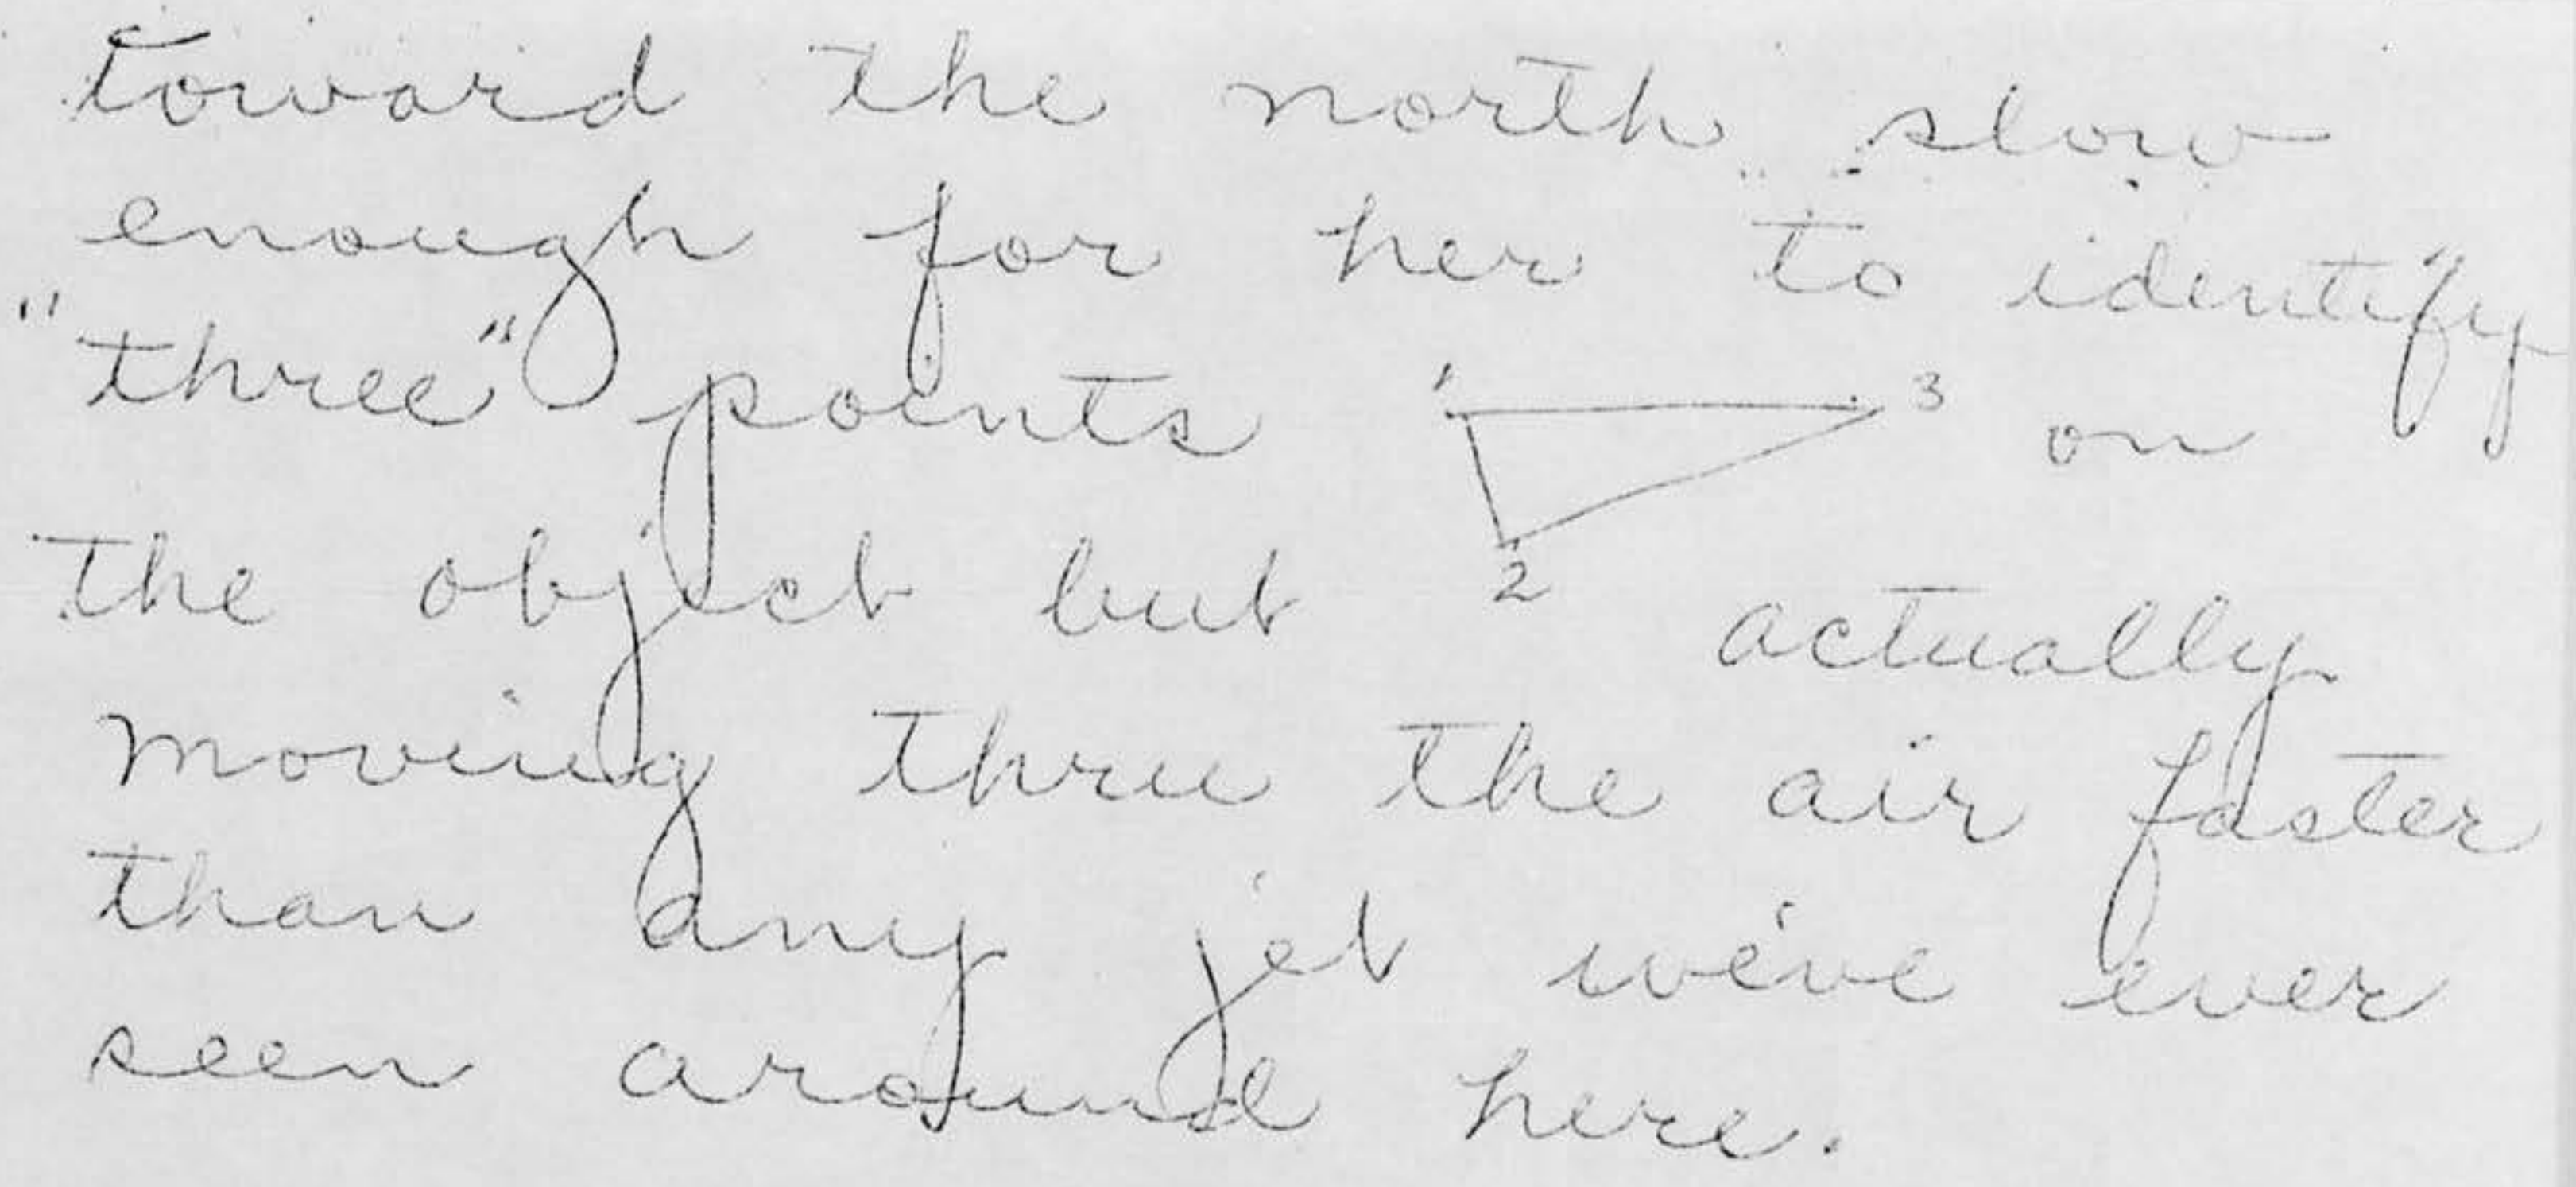 toward the north slow
enough for her to identify
"three" points 1 3 on
2
the object but actually
moving thru the air faster
than any jet we've ever
seen around here.